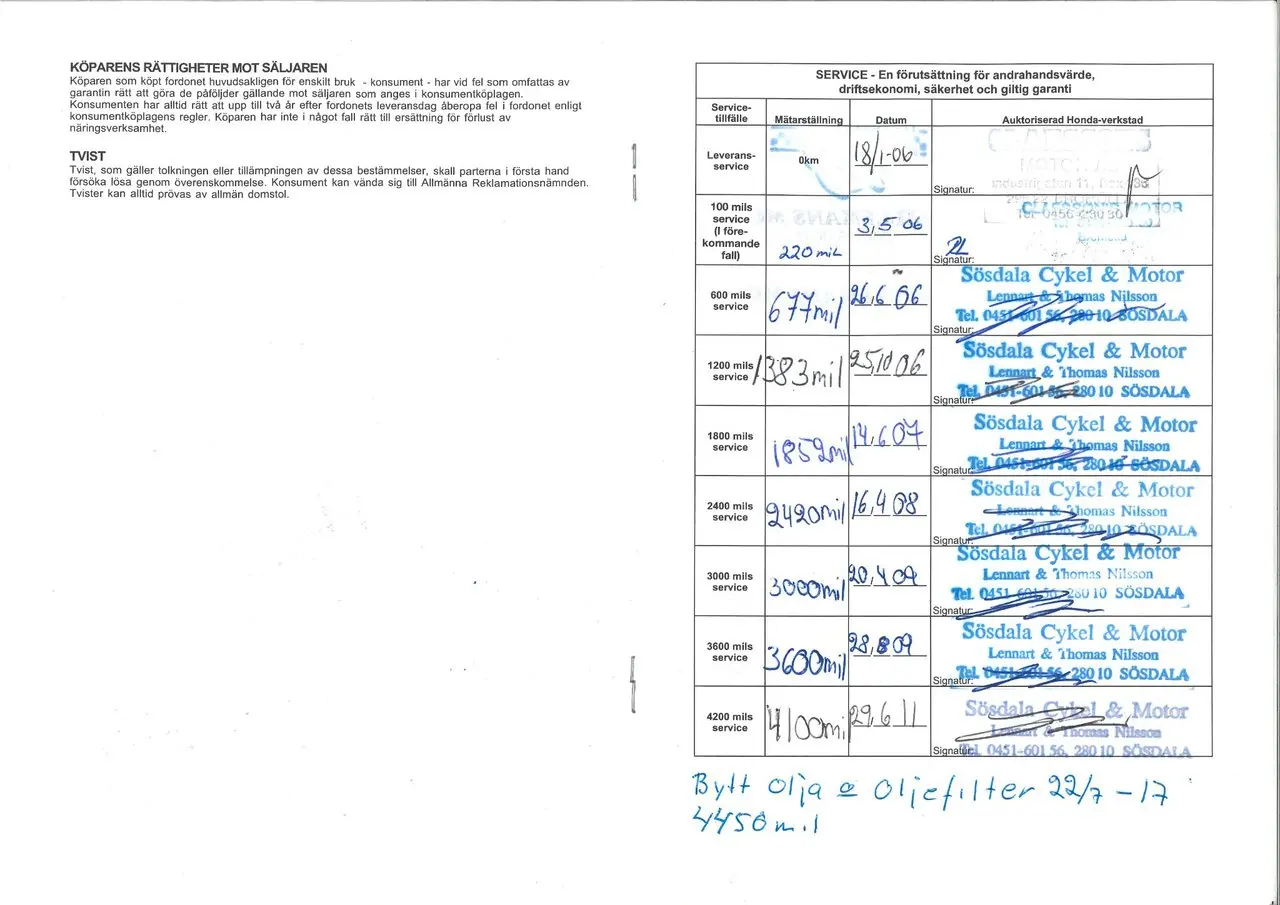 KÖPARENS RÄTTIGHETER MOT SÄLJAREN
Köparen som köpt fordonet huvudsakligen för enskilt bruk - konsument - har vid fel som omfattas av
garantin rätt att göra de påföljder gällande mot säljaren som anges i konsumentköplagen.
Konsumenten har alltid rätt att upp till två år efter fordonets leveransdag åberopa fel i fordonet enligt
konsumentköplagens regler. Köparen har inte i något fall rätt till ersättning för förlust av
näringsverksamhet.
TVIST
Tvist, som gäller tolkningen eller tillämpningen av dessa bestämmelser, skall parterna i första hand
försöka lösa genom överenskommelse. Konsument kan vända sig till Allmänna Reklamationsnämnden.
Tvister kan alltid prövas av allmän domstol.
SERVICE - En förutsättning för andrahandsvärde,
driftsekonomi, säkerhet och giltig garanti
Service-
tillfälle Mätarställning Datum Auktoriserad Honda-verkstad
Leverans-
service 0km 18/1-06
Signatur:
100 mils
service
(I före-
kommande
fall) 220 mil 3,5 06
MOTOR
Signatur:
600 mils
service 677mil 26,6 06
Sösdala Cykel & Motor
Lennart & Thomas Nilsson
Tel. 0451-601 56, 280 10 SÖSDALA
Signatur:
1200 mils
service 1383mil 25,10 06
Sösdala Cykel & Motor
Lennart & Thomas Nilsson
Tel. 0451-601 56, 280 10 SÖSDALA
Signatur:
1800 mils
service 1852mil 14,6 07
Sösdala Cykel & Motor
Lennart & Thomas Nilsson
Tel. 0451-601 56, 280 10 SÖSDALA
Signatur:
2400 mils
service 2420mil 16,4 08
Sösdala Cykel & Motor
Lennart & Thomas Nilsson
Tel. 0451-601 56, 280 10 SÖSDALA
Signatur:
3000 mils
service 3000mil 20,4 09
Sösdala Cykel & Motor
Lennart & Thomas Nilsson
Tel. 0451-601 56, 280 10 SÖSDALA
Signatur:
3600 mils
service 3600mil 28,8 09
Sösdala Cykel & Motor
Lennart & Thomas Nilsson
Tel. 0451-601 56, 280 10 SÖSDALA
Signatur:
4200 mils
service 4100mil 29,6 11
Sösdala Cykel & Motor
Lennart & Thomas Nilsson
Tel. 0451-601 56, 280 10 SÖSDALA
Signatur:
Bytt olja o oljefilter 22/7 - 17
4450mil